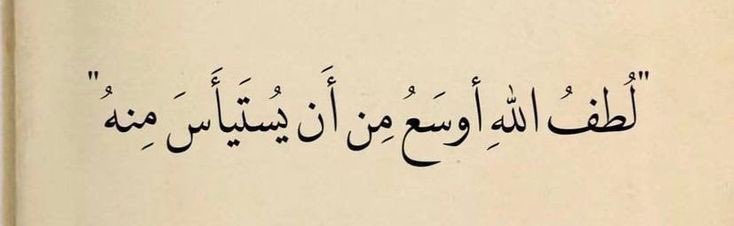 "لُطفُ اللهِ أوسَعُ مِن أَن يُستَيأَسَ مِنهُ"